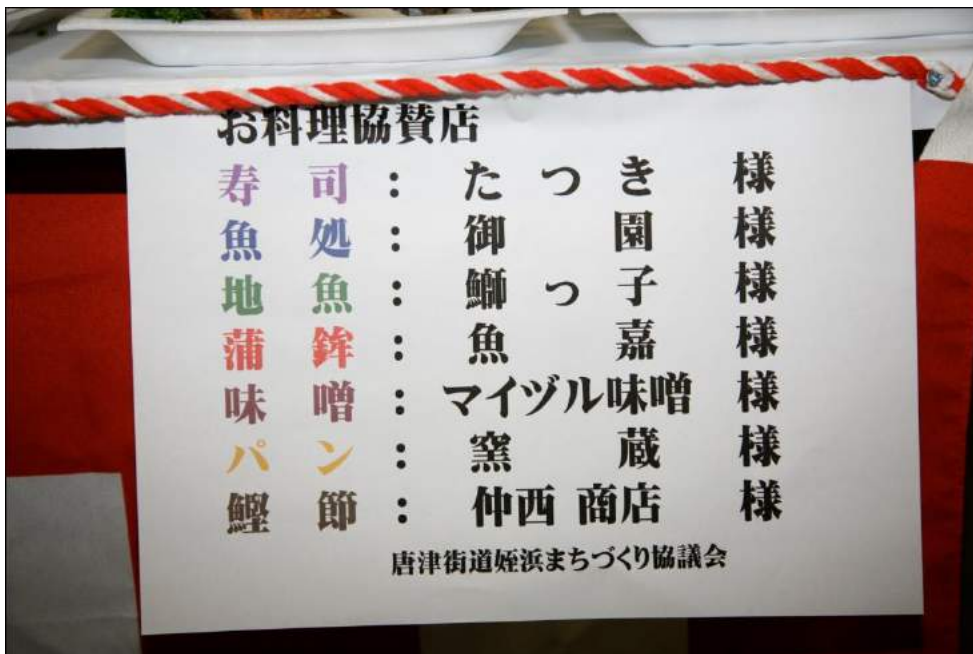 お料理協賛店
寿司：たつき 様
魚処：御園 様
地魚：鰤っ子 様
蒲鉾：魚嘉 様
味噌：マイヅル味噌 様
パン：窯蔵 様
鰹節：仲西商店 様
唐津街道姪浜まちづくり協議会